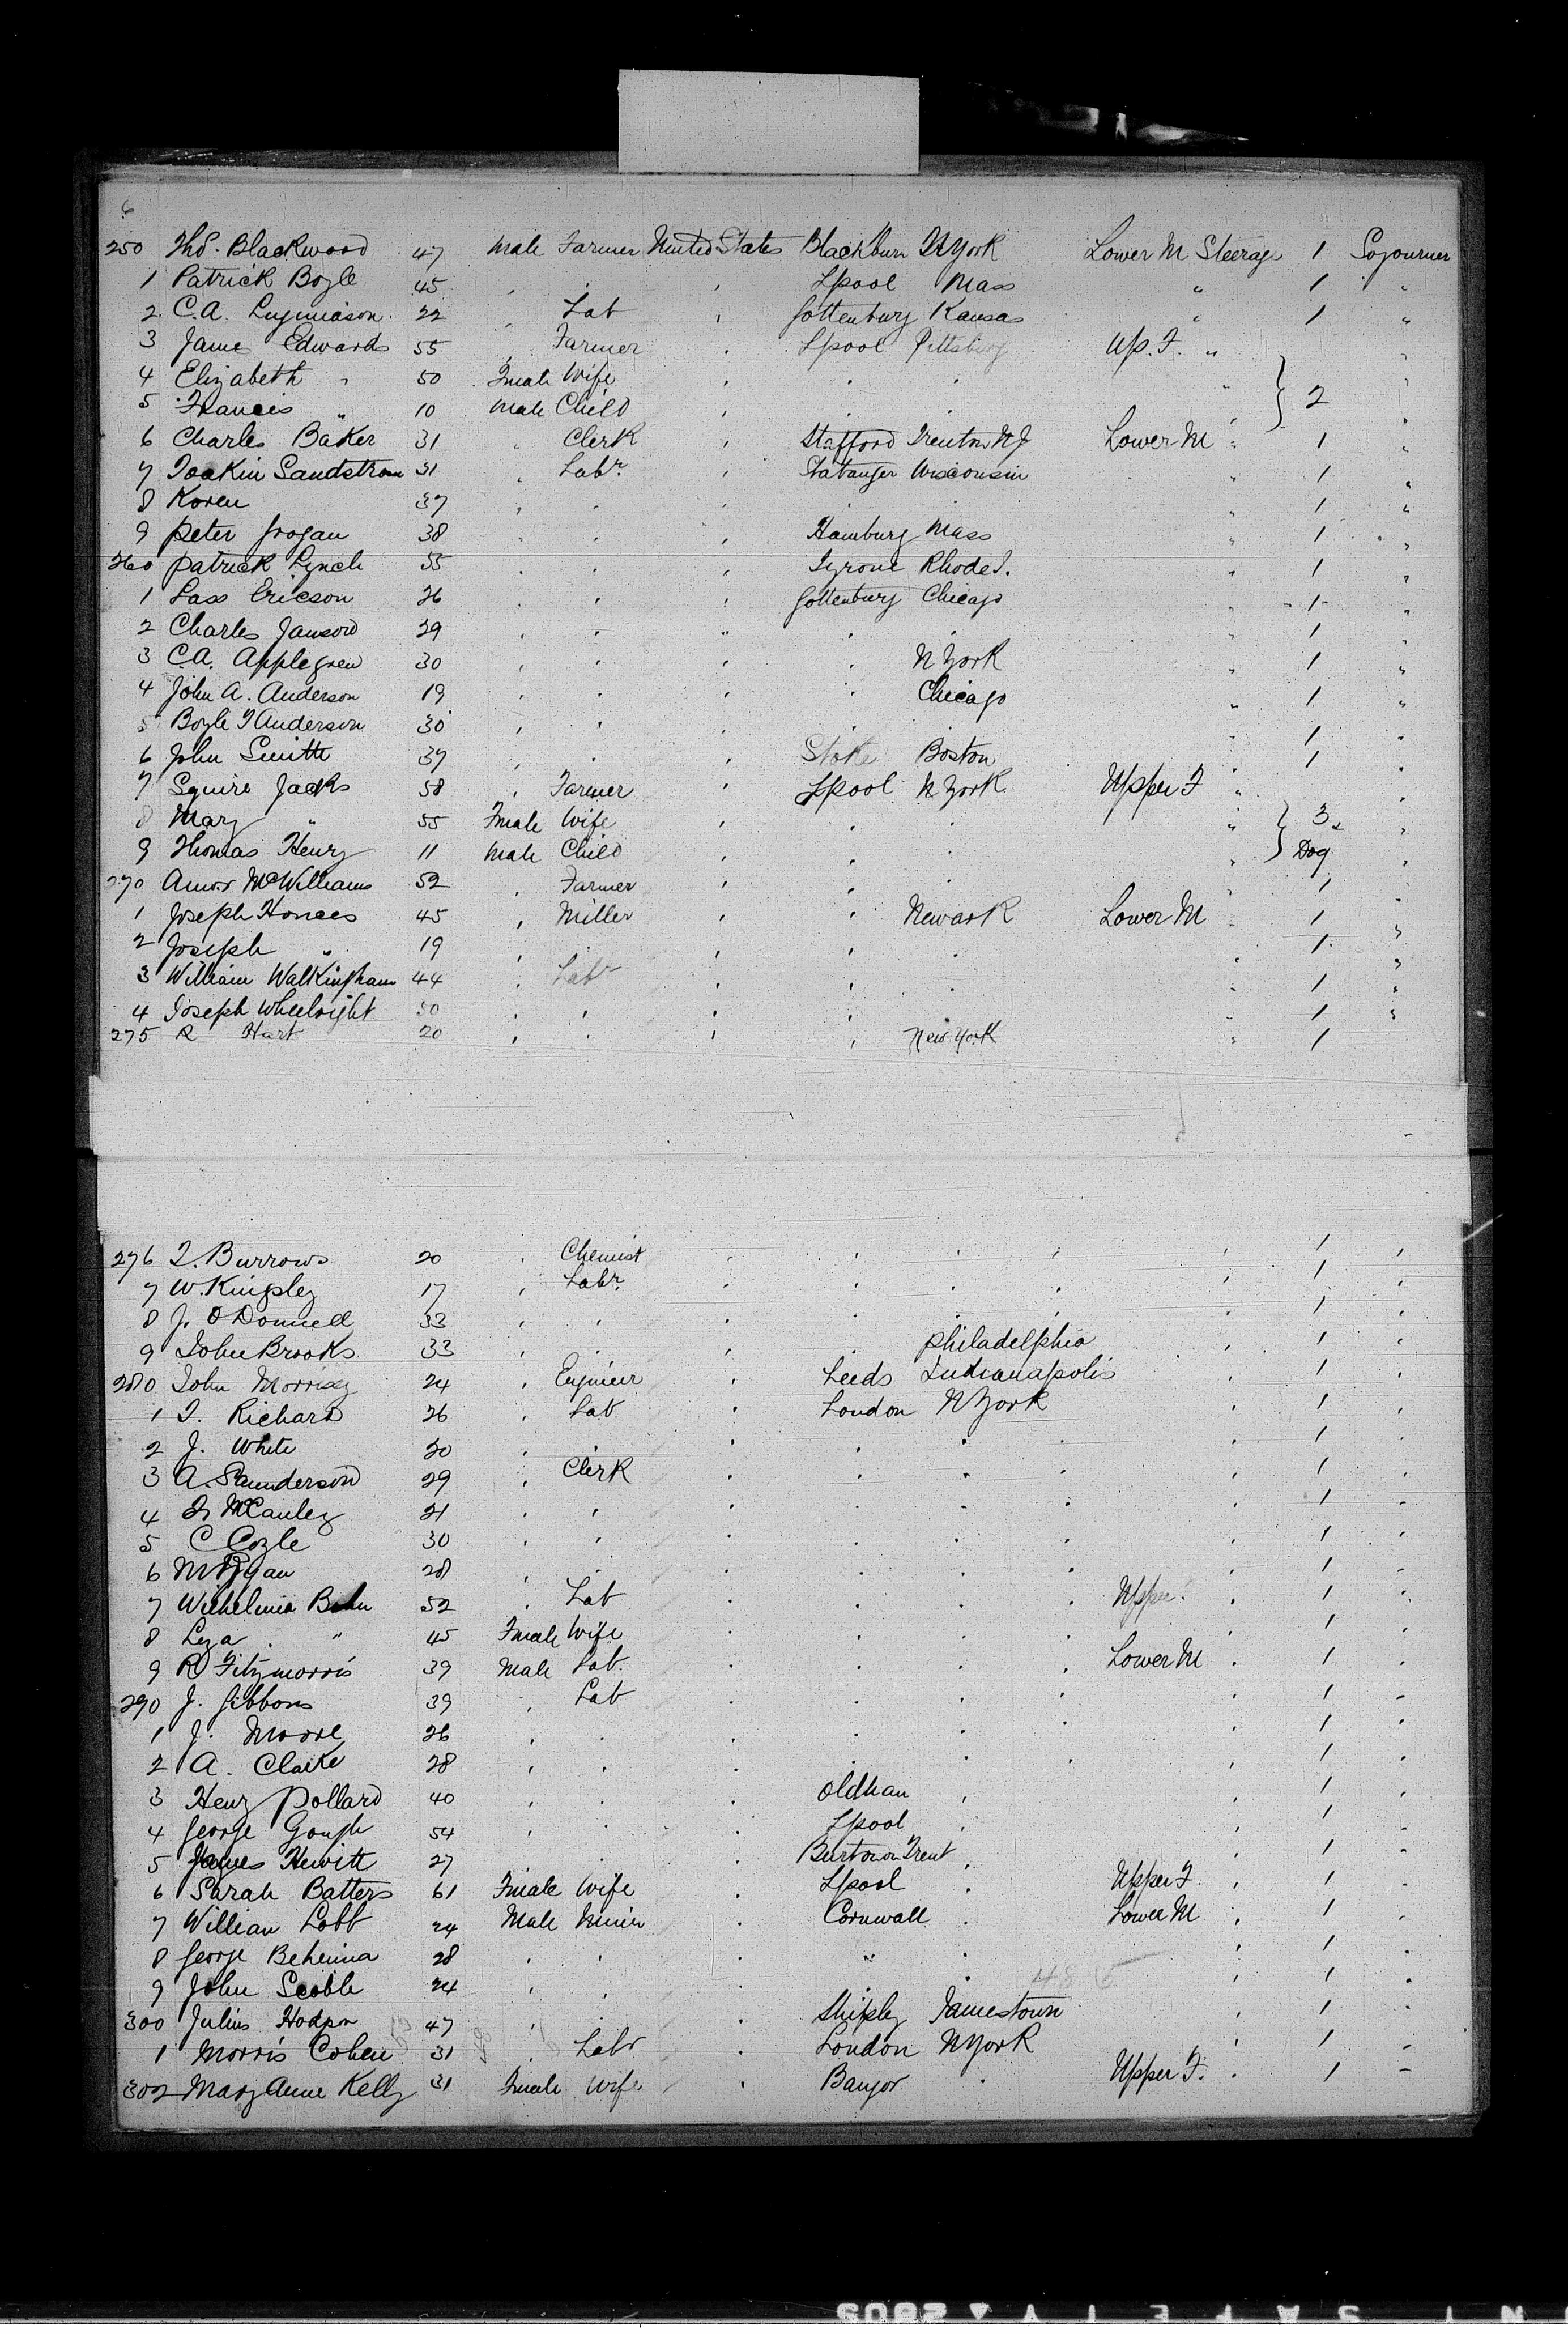 6
250 Thos. Blackwood 47 Male Farmer United States Blackburn N York Lower M Steerage 1 Sojourner
1 Patrick Boyle 45 , , , Lpool Mass " 1 "
2 C.A. 22 , Lab , Gottenburg Kansas " 1 "
3 James Edwards 55 , Farmer , Lpool Pittsburg Up. F. " "
4 Elizabeth " 50 Fmale Wife , , , " "
5 Francis " 10 Male Child , , , " } 2 "
6 Charles Baker 31 " Clerk , Stafford Trenton N J Lower M " 1 "
7 Joakin Sandstrom 31 , Labr. , Statanger Wisconsin " 1 "
8 Koren 37 , , , , , " 1 "
9 Peter Grogan 38 , , , Hamburg Mass " 1 "
260 Patrick Lynch 55 , , , Tyrone Rhode I. " 1 "
1 Lass Ericson 26 , , , Gottenburg Chicago " 1 "
2 Charles Janson 29 , , " , , " 1 "
3 C.A. Applegren 30 , , , , N York " 1 "
4 John A. Anderson 19 , , , , Chicago " 1 "
5 Boyle Anderson 30 , , , , , " 1 "
6 John Smith 37 , , , Stoke Boston " 1 "
7 Squire Jacks 58 , Farmer , Lpool N York Upper F " "
8 Mary " 55 Fmale Wife , , , " } 3 "
9 Thomas Henry 11 Male Child , , , " Dog "
270 Amos McWilliams 52 , Farmer , , , 1 "
1 Joseph 45 , Miller , , Newark Lower M " 1 "
2 Joseph " 19 , , , , , " 1 "
3 William Walkingham 44 , Labr , , , " 1 "
4 Joseph Wheelright 50 , , , , , " 1 "
275 R Hart 20 , , , , New York " 1
276 T. Burrows 20 , Chemist , , , , , 1 ,
7 W. Kingsley 17 , Labr. , , , , , 1 ,
8 J. O Donnell 33 , , , , , , , 1 ,
9 John Brooks 33 , , , , Philadelphia , 1 ,
280 John Morrisey 24 , Engineer , Leeds Indianapolis 1 ,
1 T. Richard 26 , Lab , London N York , 1 ,
2 J. White 20 , , , , , , 1 ,
3 A. Saunderson 29 , Clerk , , , , , 1 ,
4 McCauley 21 , , , , , , , 1 ,
5 C Coyle 30 , , , , , , , 1 ,
6 M Ryan 28 , , , , , , , 1 ,
7 Wilhelmia Bohn 52 , Lab , , , , Upper , 1 ,
8 Leza " 45 Fmale Wife , , , , , 1 ,
9 R Fitzmorris 39 Male Lab. , , , , Lower M , 1 ,
290 J. Gibbons 39 , Lab , , , , , 1 ,
1 J. Moore 26 , , , , , , 1 ,
2 A. Clarke 28 , , , , , , , 1 ,
3 Henry Pollard 40 , , , Oldham , , 1 ,
4 George Gough 54 , , , Lpool , , 1 ,
5 James Hewitt 27 , , , Burton on Trent , , 1 ,
6 Sarah Batters 61 Fmale Wife , Lpool , Upper F , 1 ,
7 William Lobb 24 Male Miner , Cornwall , Lower M , 1 ,
8 George Behenna 28 , , , " , , 1 ,
9 John Scoble 24 , , , , , , 1 ,
300 Julius Hodgson 47 , , , Shipley Jamestown , 1 ,
1 Morris Cohen 31 , Labr , London N York , 1 ,
302 Mary Anne Kelly 31 Fmale Wife , Bangor , Upper F. , 1 ,